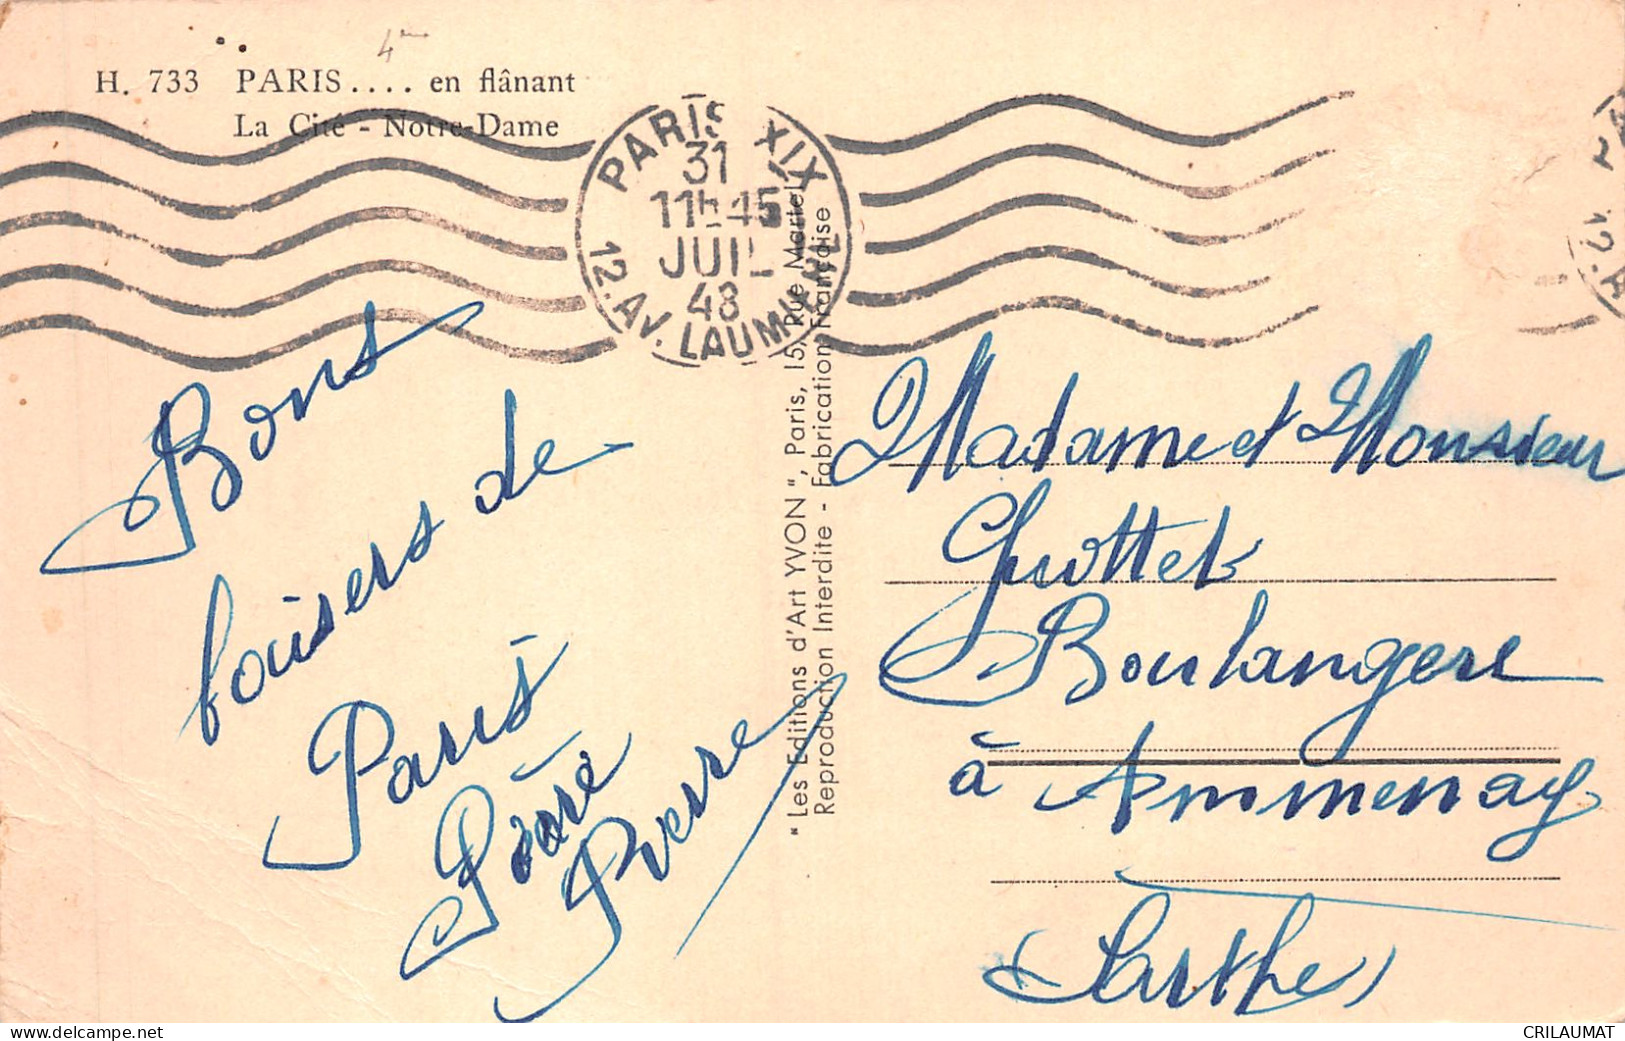 H. 733 PARIS.... en flânant
La Cité - Notre-Dame
PARIS XIX
31
11h45
JUIL
48
12. AV. LAUMIERE
Bons
baisers de
Paris
Pierre
"Les Editions d'Art YVON", Paris, 15, Rue Martel
Reproduction Interdite - Fabrication Française
Madame et Monsieur
Guottet
Boulangere
à Ammenay
(Sarthe)
CRILAUMAT